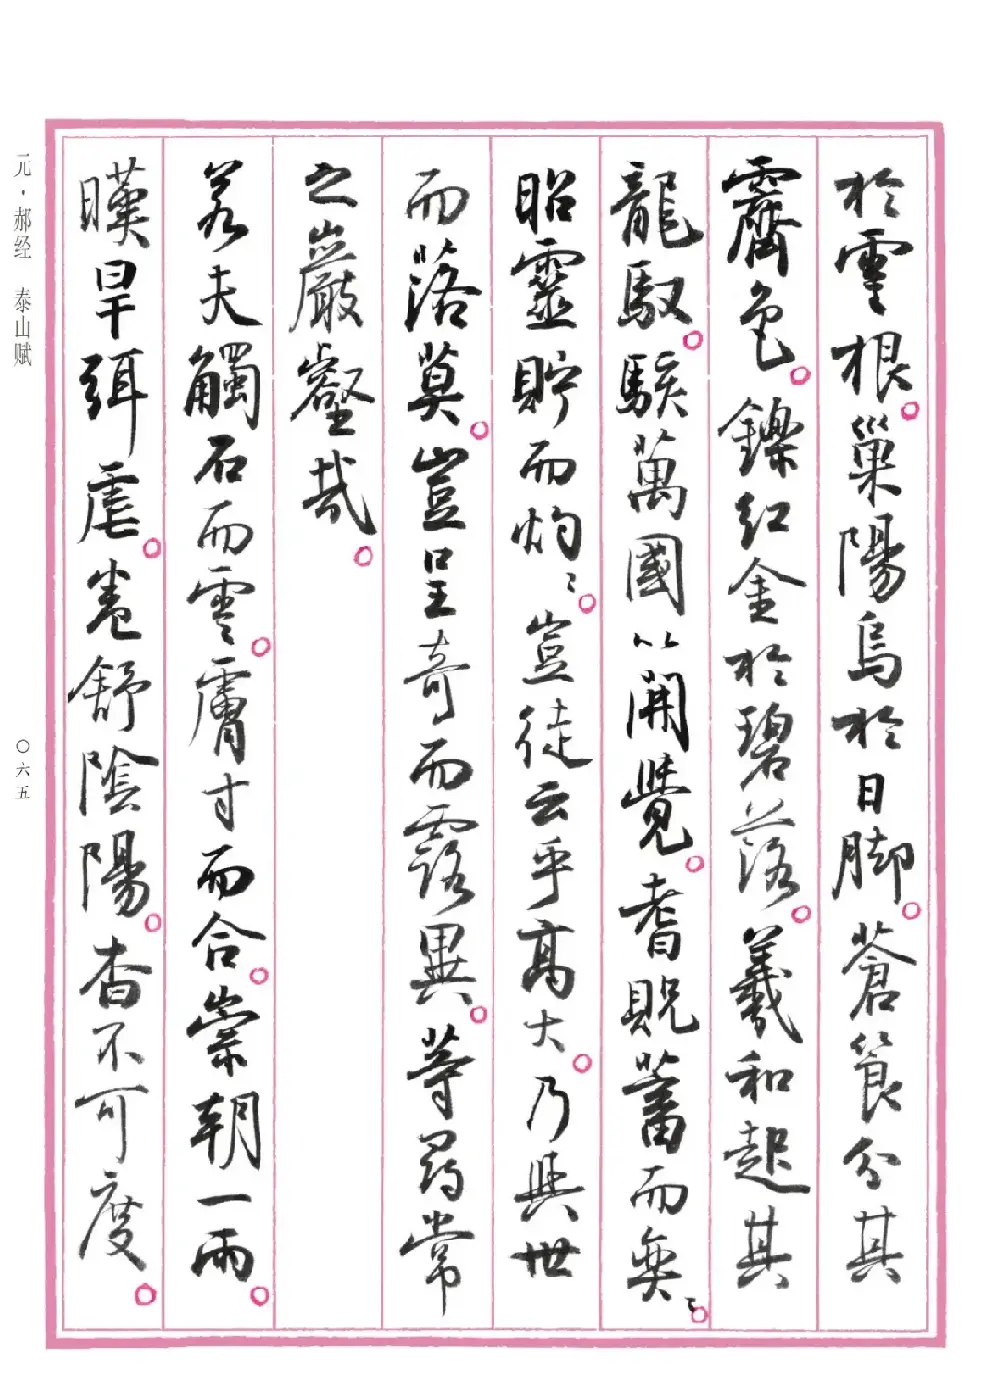 於雲根。巢陽烏於日脚。蒼筤分其
霽色。鑠紅金於碧落。羲和起其
龍馭。駭萬國以開覺。耆貺蓄而奕〻。
昭靈貯而灼〻。豈徒云乎高大。乃與世
而落莫。豈呈奇而露異。等尋常
之巖壑哉。
若夫觸石而雲。膚寸而合。崇朝一雨。
暵旱弭虐。卷舒陰陽。杳不可度。
元·郝经 泰山赋
〇六五